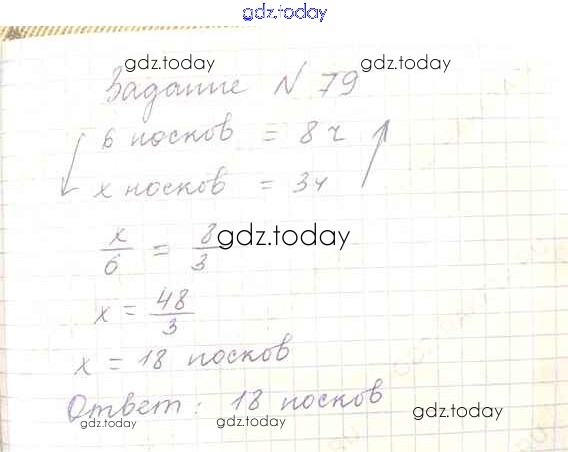 gdz.today
gdz.today gdz.today
Задание N 79
6 носков = 8 ч
x носков = 3 ч
x/6 = 8/3
gdz.today
x = 48/3
x = 18 носков
Ответ: 18 носков
gdz.today gdz.today gdz.today